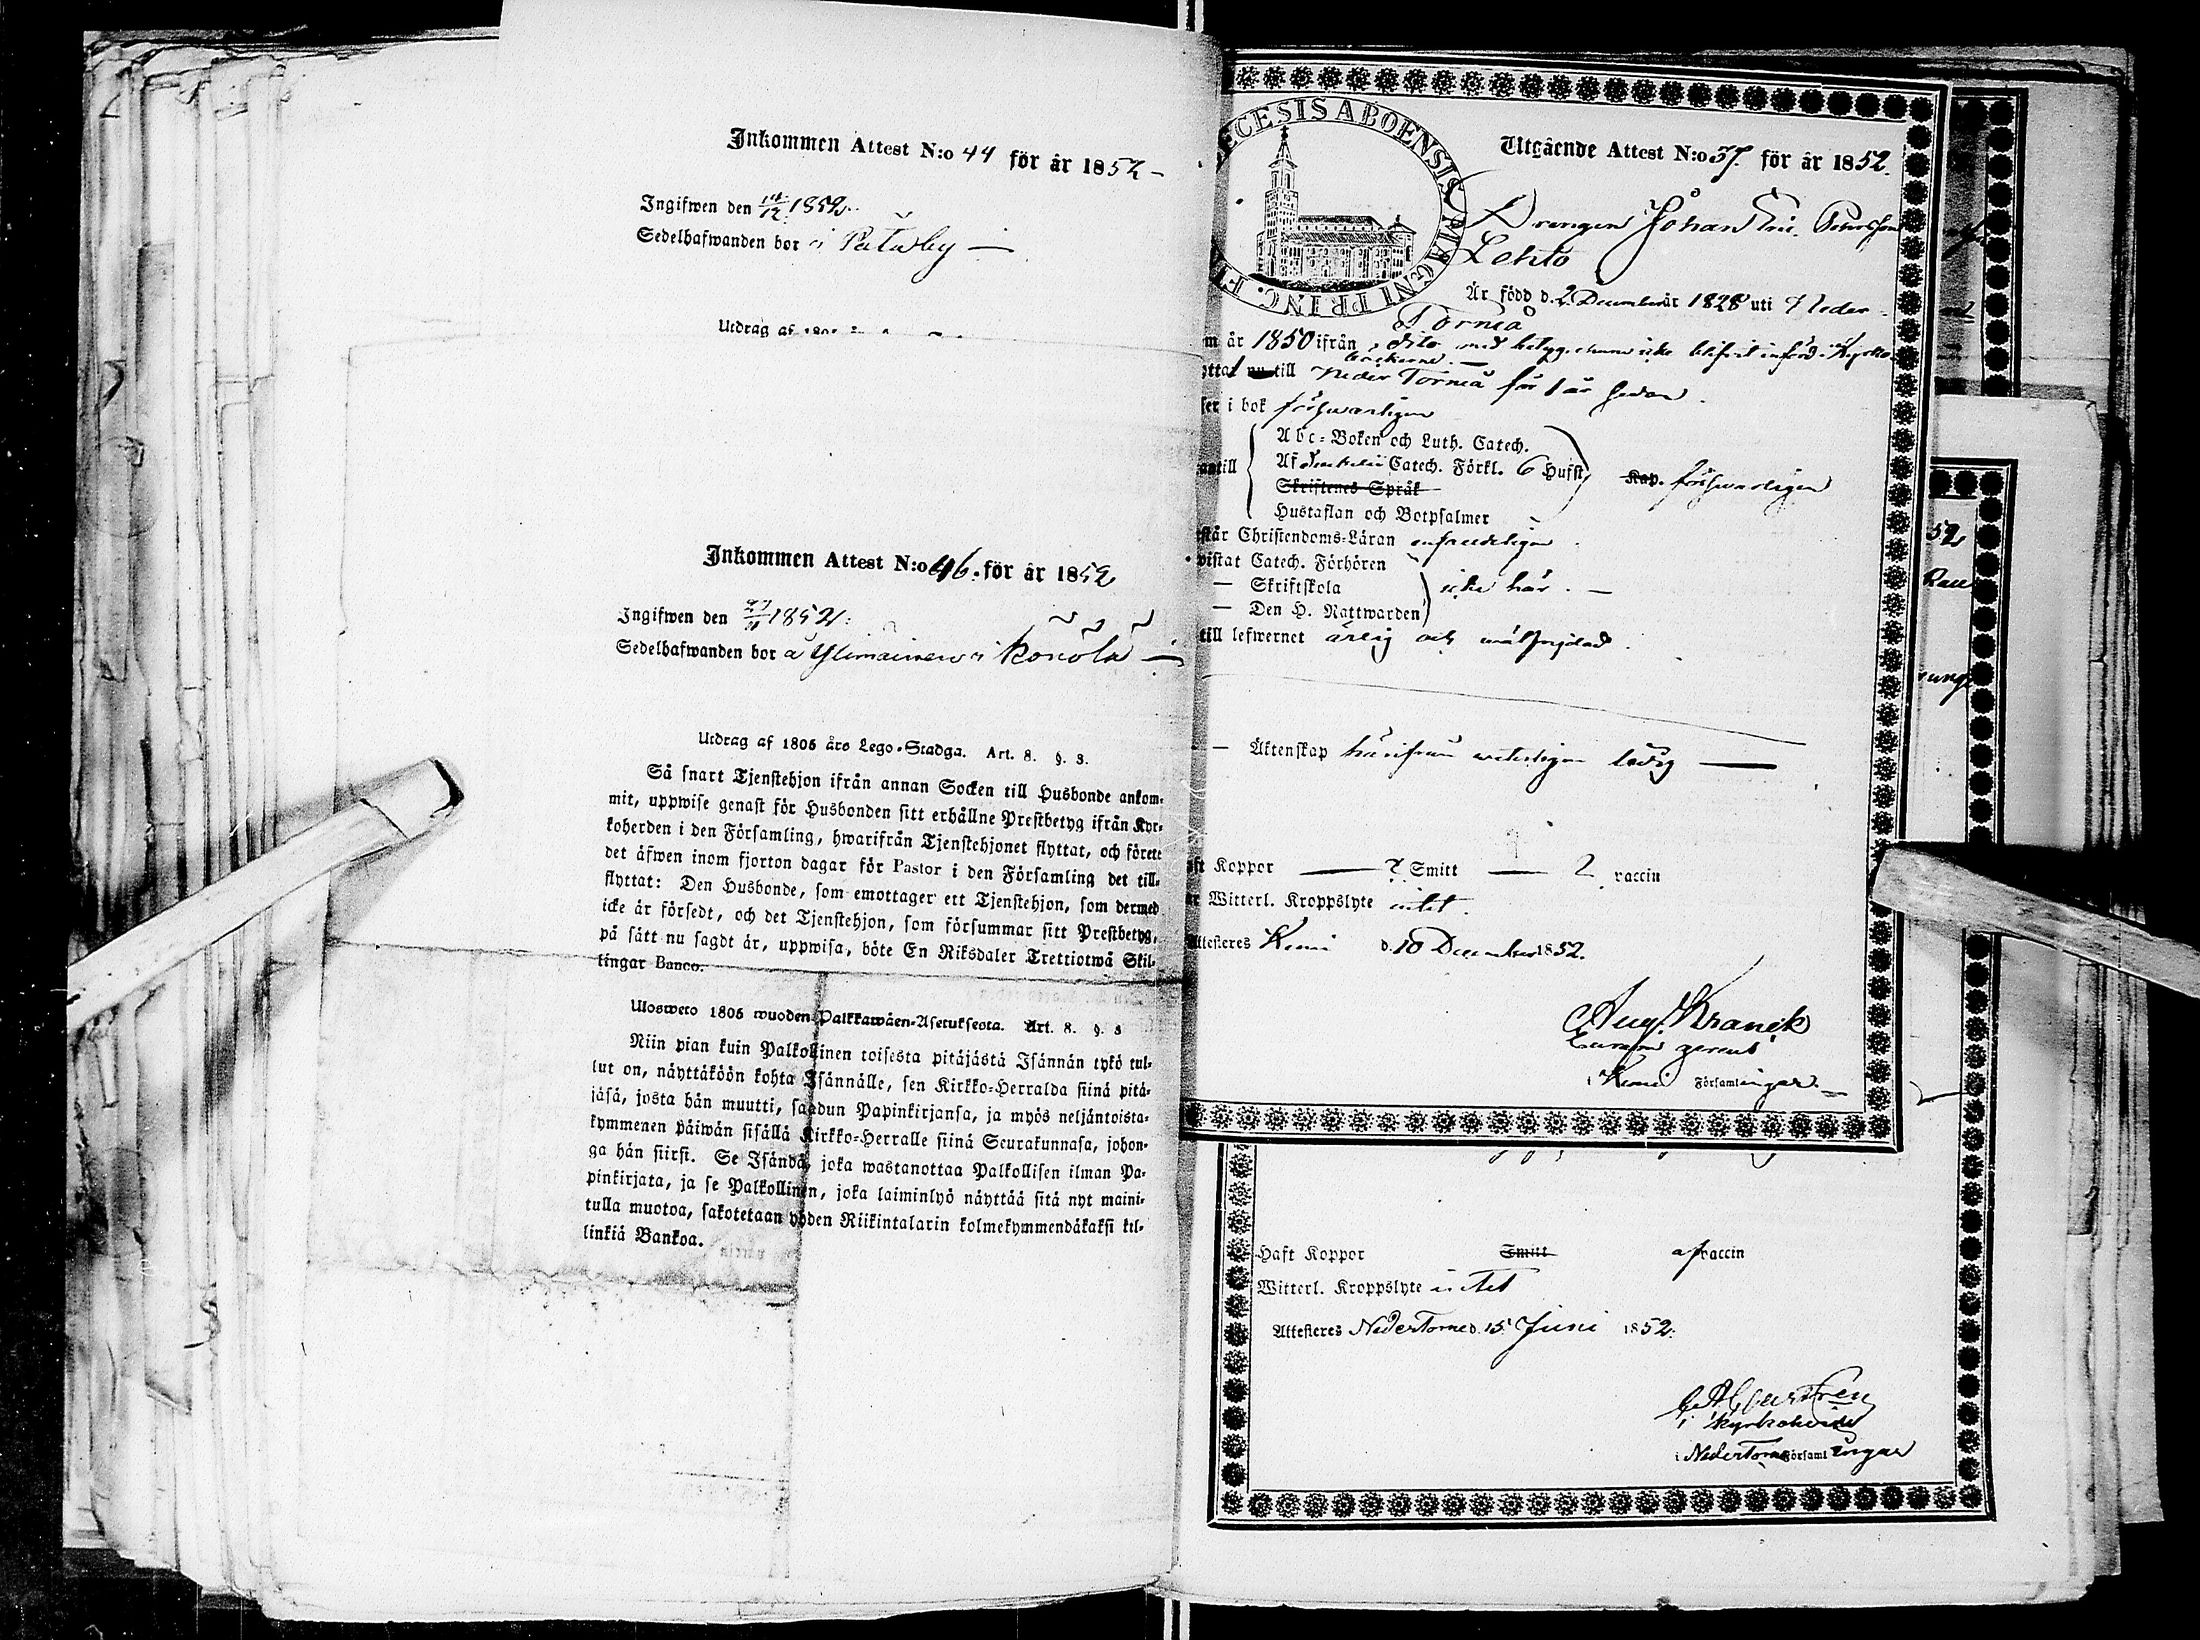 Inkommen Attest N:o 44 för år 1852 –
Ingifwen den 1852.
Sedelhafwanden bor i
Utdrag af
Inkommen Attest N:o 46. för år 1852
Ingifwen den 1852.
Sedelhafwanden bor å Ylimainen i Konölä —
Utdrag af 1805 års Lego-Stadga. Art. 8. §. 8.
Så snart Tjenstehjon ifrån annan Socken till Husbonde ankom-
mit, uppwise genast för Husbonden sitt erhållne Prestbetyg ifrån Kyr-
koherden i den Församling, hwarifrån Tjenstehjonet flyttat, och förete
det äfwen inom fjorton dagar för Pastor i den Församling det till-
flyttat: Den Husbonde, som emottager ett Tjenstehjon, som dermed
icke är försedt, och det Tjenstehjon, som försummar sitt Prestbetyg,
på sätt nu sagdt är, uppwisa, böte En Riksdaler Trettiotwå Skil-
lingar Banco.
Uloswето 1805 wuoden Palkkawäen-Asetuksesta. Art. 8. §. 8
Niin pian kuin Palkollinen toisesta pitäjästä Isännän tykö tul-
lut on, näyttäköön kohta Isännälle, sen Kirkko-Herralda siinä pitä-
jäsä, josta hän muutti, saadun Papinkirjansa, ja myös neljäntoista-
kymmenen päiwän sisällä Kirkko-Herralle siinä Seurakunnasa, johon-
ga hän siirsi. Se Isändä, joka wastanottaa Palkollisen ilman Pa-
pinkirjata, ja se Palkollinen, joka laiminlyö näyttää sitä nyt maini-
tulla muotoa, sakotetaan yhden Riikintalarin kolmekymmendäkaksi kil-
linkiä Bankoa.
ECESIS ABOENSIS MAGNI PRINC. F
Utgående Attest N:o 37. för år 1852.
Drengen Johan
Lehto
Är född d. 2 December år 1828 uti Neder
Torneå
m år 1850 ifrån dito med betyg icke blifvit införd i Kyrko
böckerne. —
yttat nu till Neder Torneå för 1 år sedan.
ser i bok försvarligen
Abc-Boken och Luth. Catech.
antill Af Catech. Förkl. 6 Hufst. Kap. försvarligen
Skriftenes Språk
Hustaflan och Botpsalmer
står Christendoms-Läran
wistat Catech. Förhören
— Skriftskola icke här. —
— Den H. Nattwarden
till lefwernet ärlig och
— Äktenskap härifrån weterligen ledig —
ft Koppor — ? Smitt — ? vaccin
r Witterl. Kroppslyte intet.
Attesteres Kemi d. 10 December 1852.
Aug. Kranck
i Kemi Församlingar. —
52
unge
Haft Koppor Smitt af vaccin
Witterl. Kroppslyte intet
Attesteres NederTorneå d. 15 Juni 1852.
i Kyrkoherde
i NederTorneå Församlingar